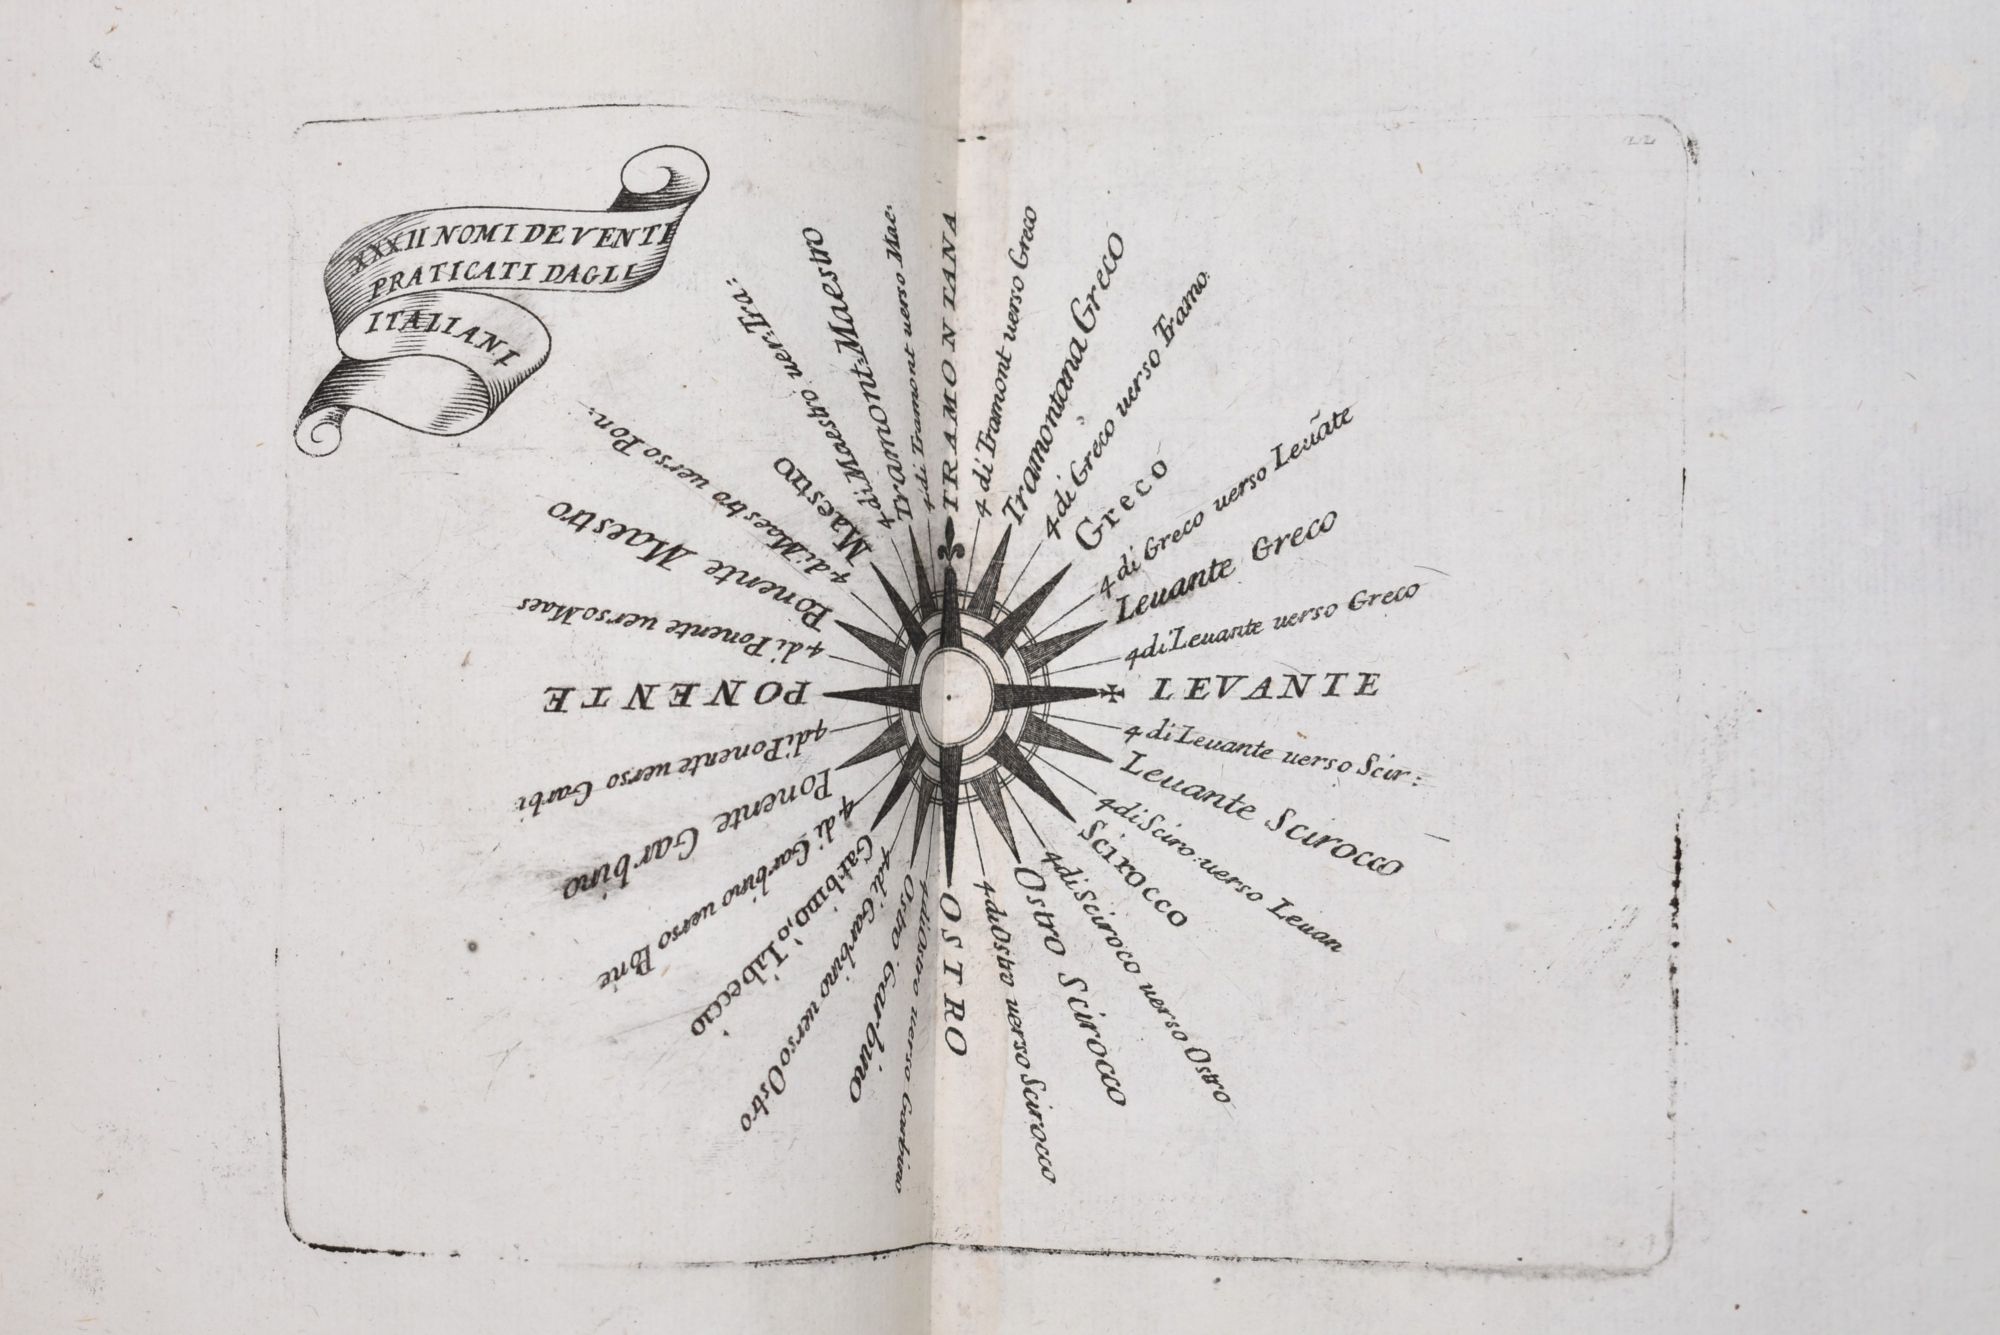 XXXII NOMI DE VENTI
PRATICATI DAGLI
ITALIANI
TRAMONTANA
4 di Tramont uerso Greco
Tramontana Greco
4 di Greco uerso Tramo.
Greco
4 di Greco uerso Leuãte
Leuante Greco
4 di Leuante uerso Greco
LEVANTE
4 di Leuante uerso Scir:
Leuante Scirocco
4 di Sciro: uerso Leuan
Scirocco
4 di Sciroco uerso Ostro
Ostro Scirocco
4 di Ostro uerso Scirocco
OSTRO
4 di Ostro uerso Garbino
Ostro Garbino
4 di Garbino uerso Ostro
Garbino, o Libeccio
4 di Garbino uerso
Ponente Garbino
4 di Ponente uerso Garbi
PONENTE
4 di Ponente uerso Maes
Ponente Maestro
4 di Maestro uerso Pon:
Maestro
4 di Maestro uer: Tra:
Tramont: Maestro
4 di Tramont uerso Mae: